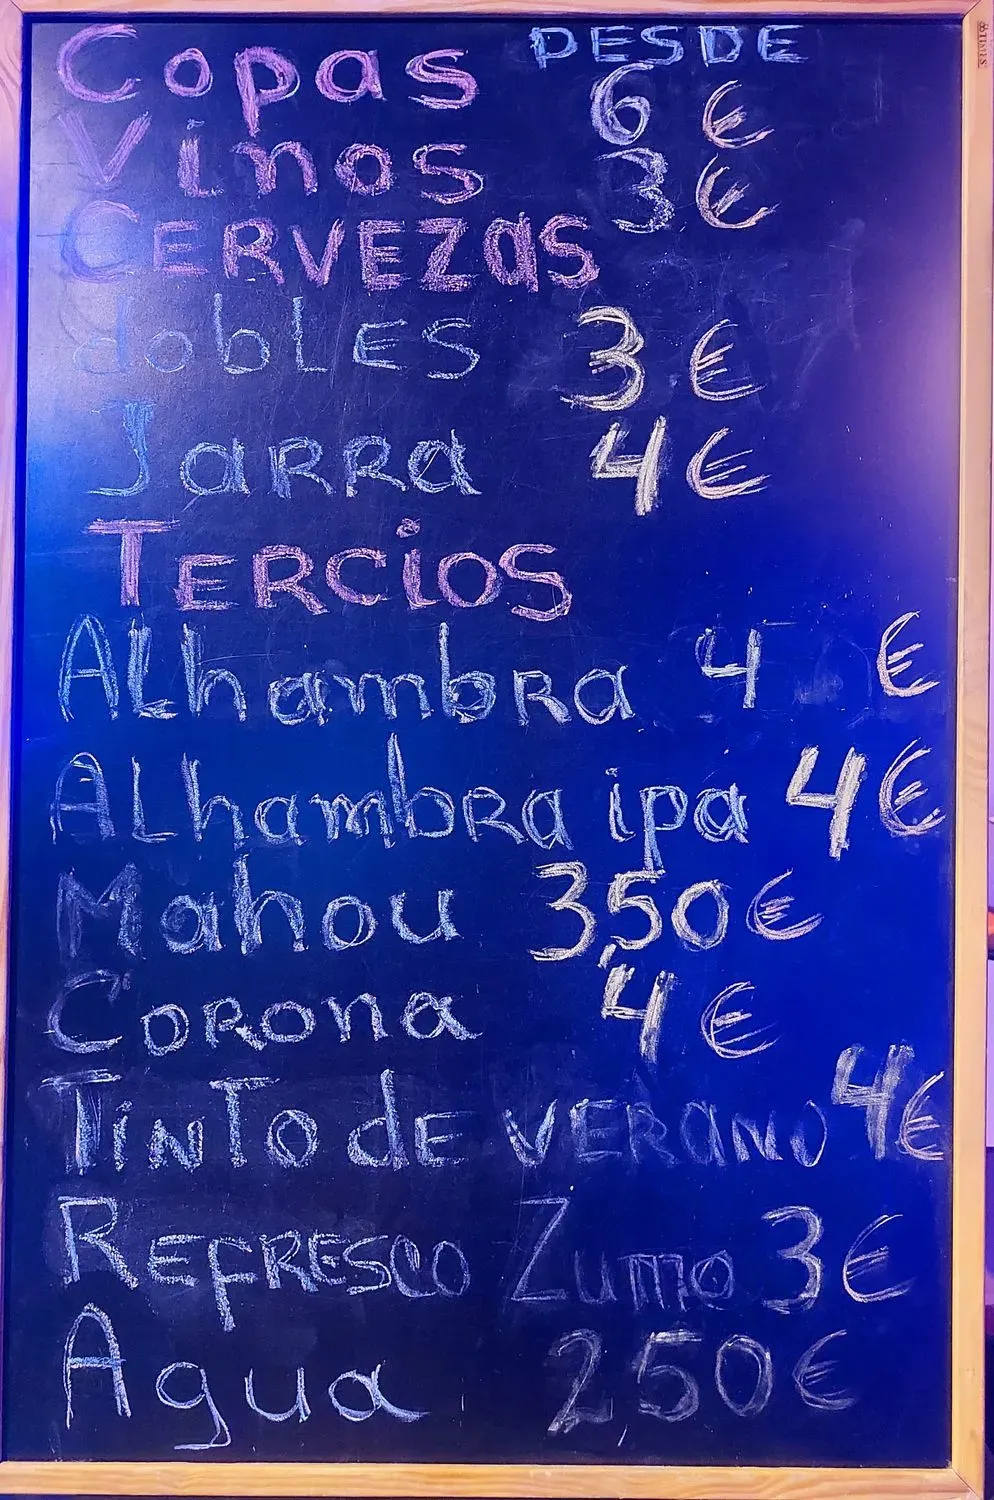 Copas DESDE 6 €
Vinos 3 €
CERVEZAS
dobLES 3 €
JaRRa 4 €
TERCiOS
ALhambRa 4 €
ALhambRa ipa 4 €
Mahou 3,50 €
CoRona 4 €
TiNTo dE VERaNO 4 €
REfRESCO Zumo 3 €
Agua 2,50 €